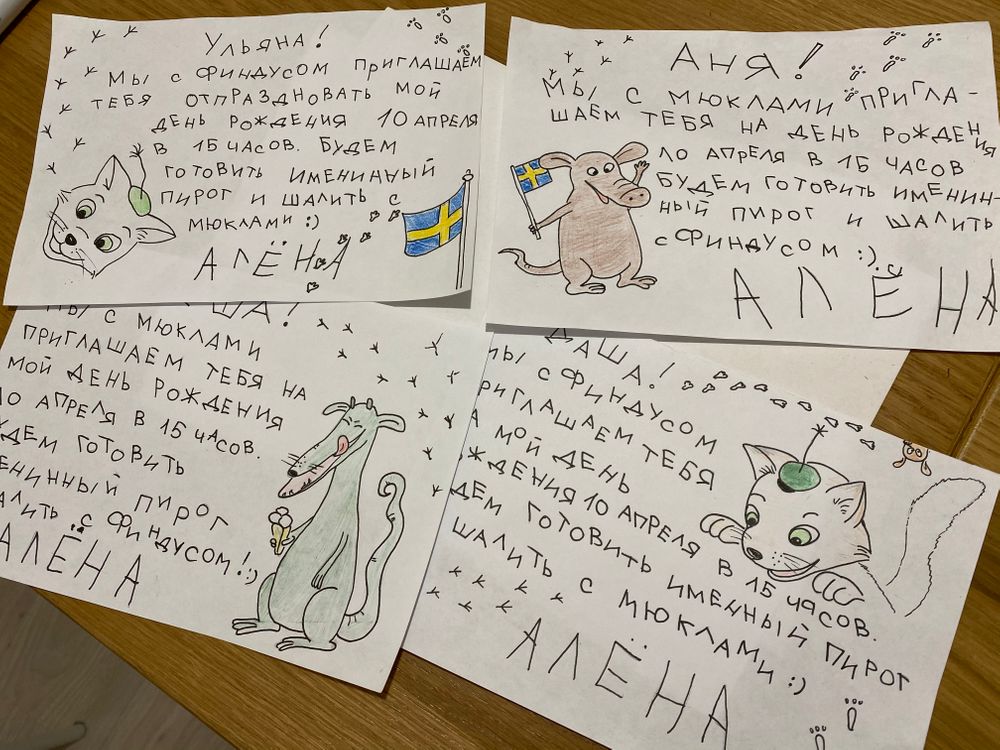 Ульяна!
Мы с Финдусом приглашаем
тебя отпраздновать мой
день рождения 10 апреля
в 15 часов. Будем
готовить именинный
пирог и шалить с
мюклами :)
АЛЁНА
Аня!
Мы с мюклами пригла-
шаем тебя на день рождения
10 апреля в 15 часов
Будем готовить именин-
ный пирог и шалить
с Финдусом :)
АЛЁНА
ША!
Мы с мюклами
приглашаем тебя на
мой день рождения
10 апреля в 15 часов.
ждем готовить
енинный пирог
алить с Финдусом! :)
АЛЁНА
Даша!
Мы с Финдусом
приглашаем тебя
а мой день
ждения 10 апреля в 15 часов.
дем готовить именный пирог
шалить с мюклами :)
АЛЁНА